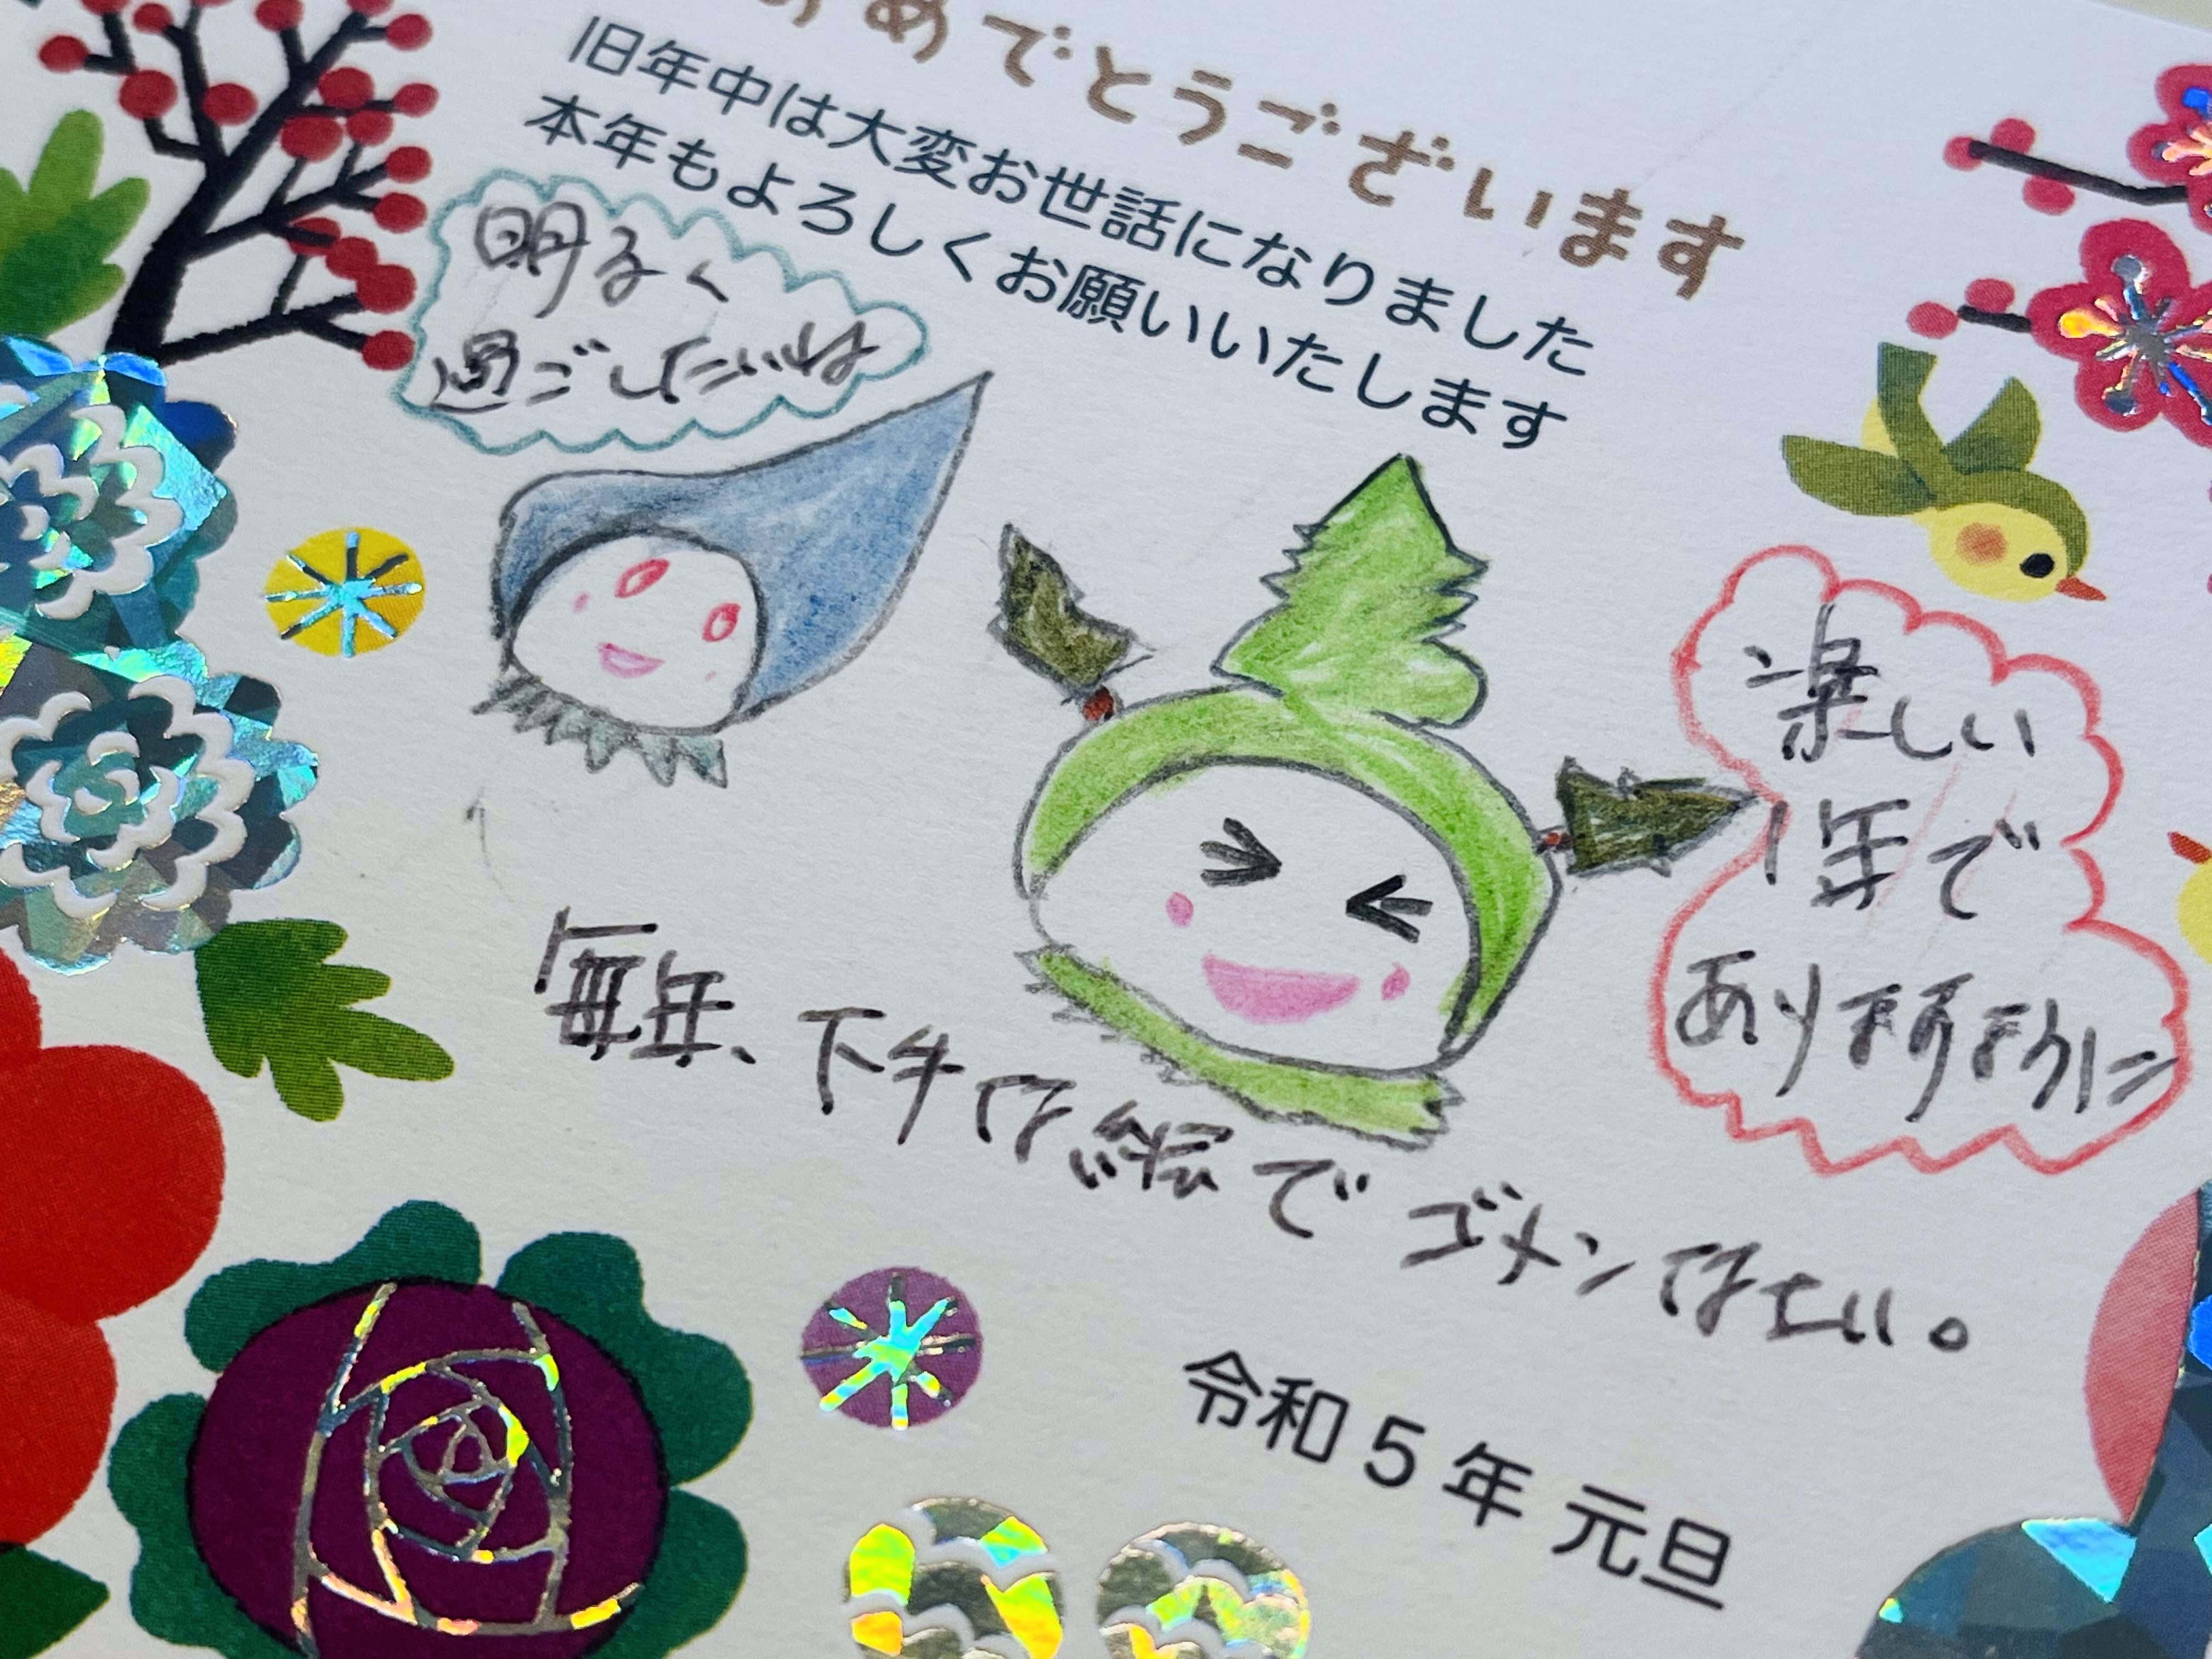 めでとうございます
旧年中は大変お世話になりました
本年もよろしくお願いいたします
明るく
過ごしたいね
楽しい
1年で
ありますように
毎年、下手な絵でゴメンなさい。
令和5年 元旦